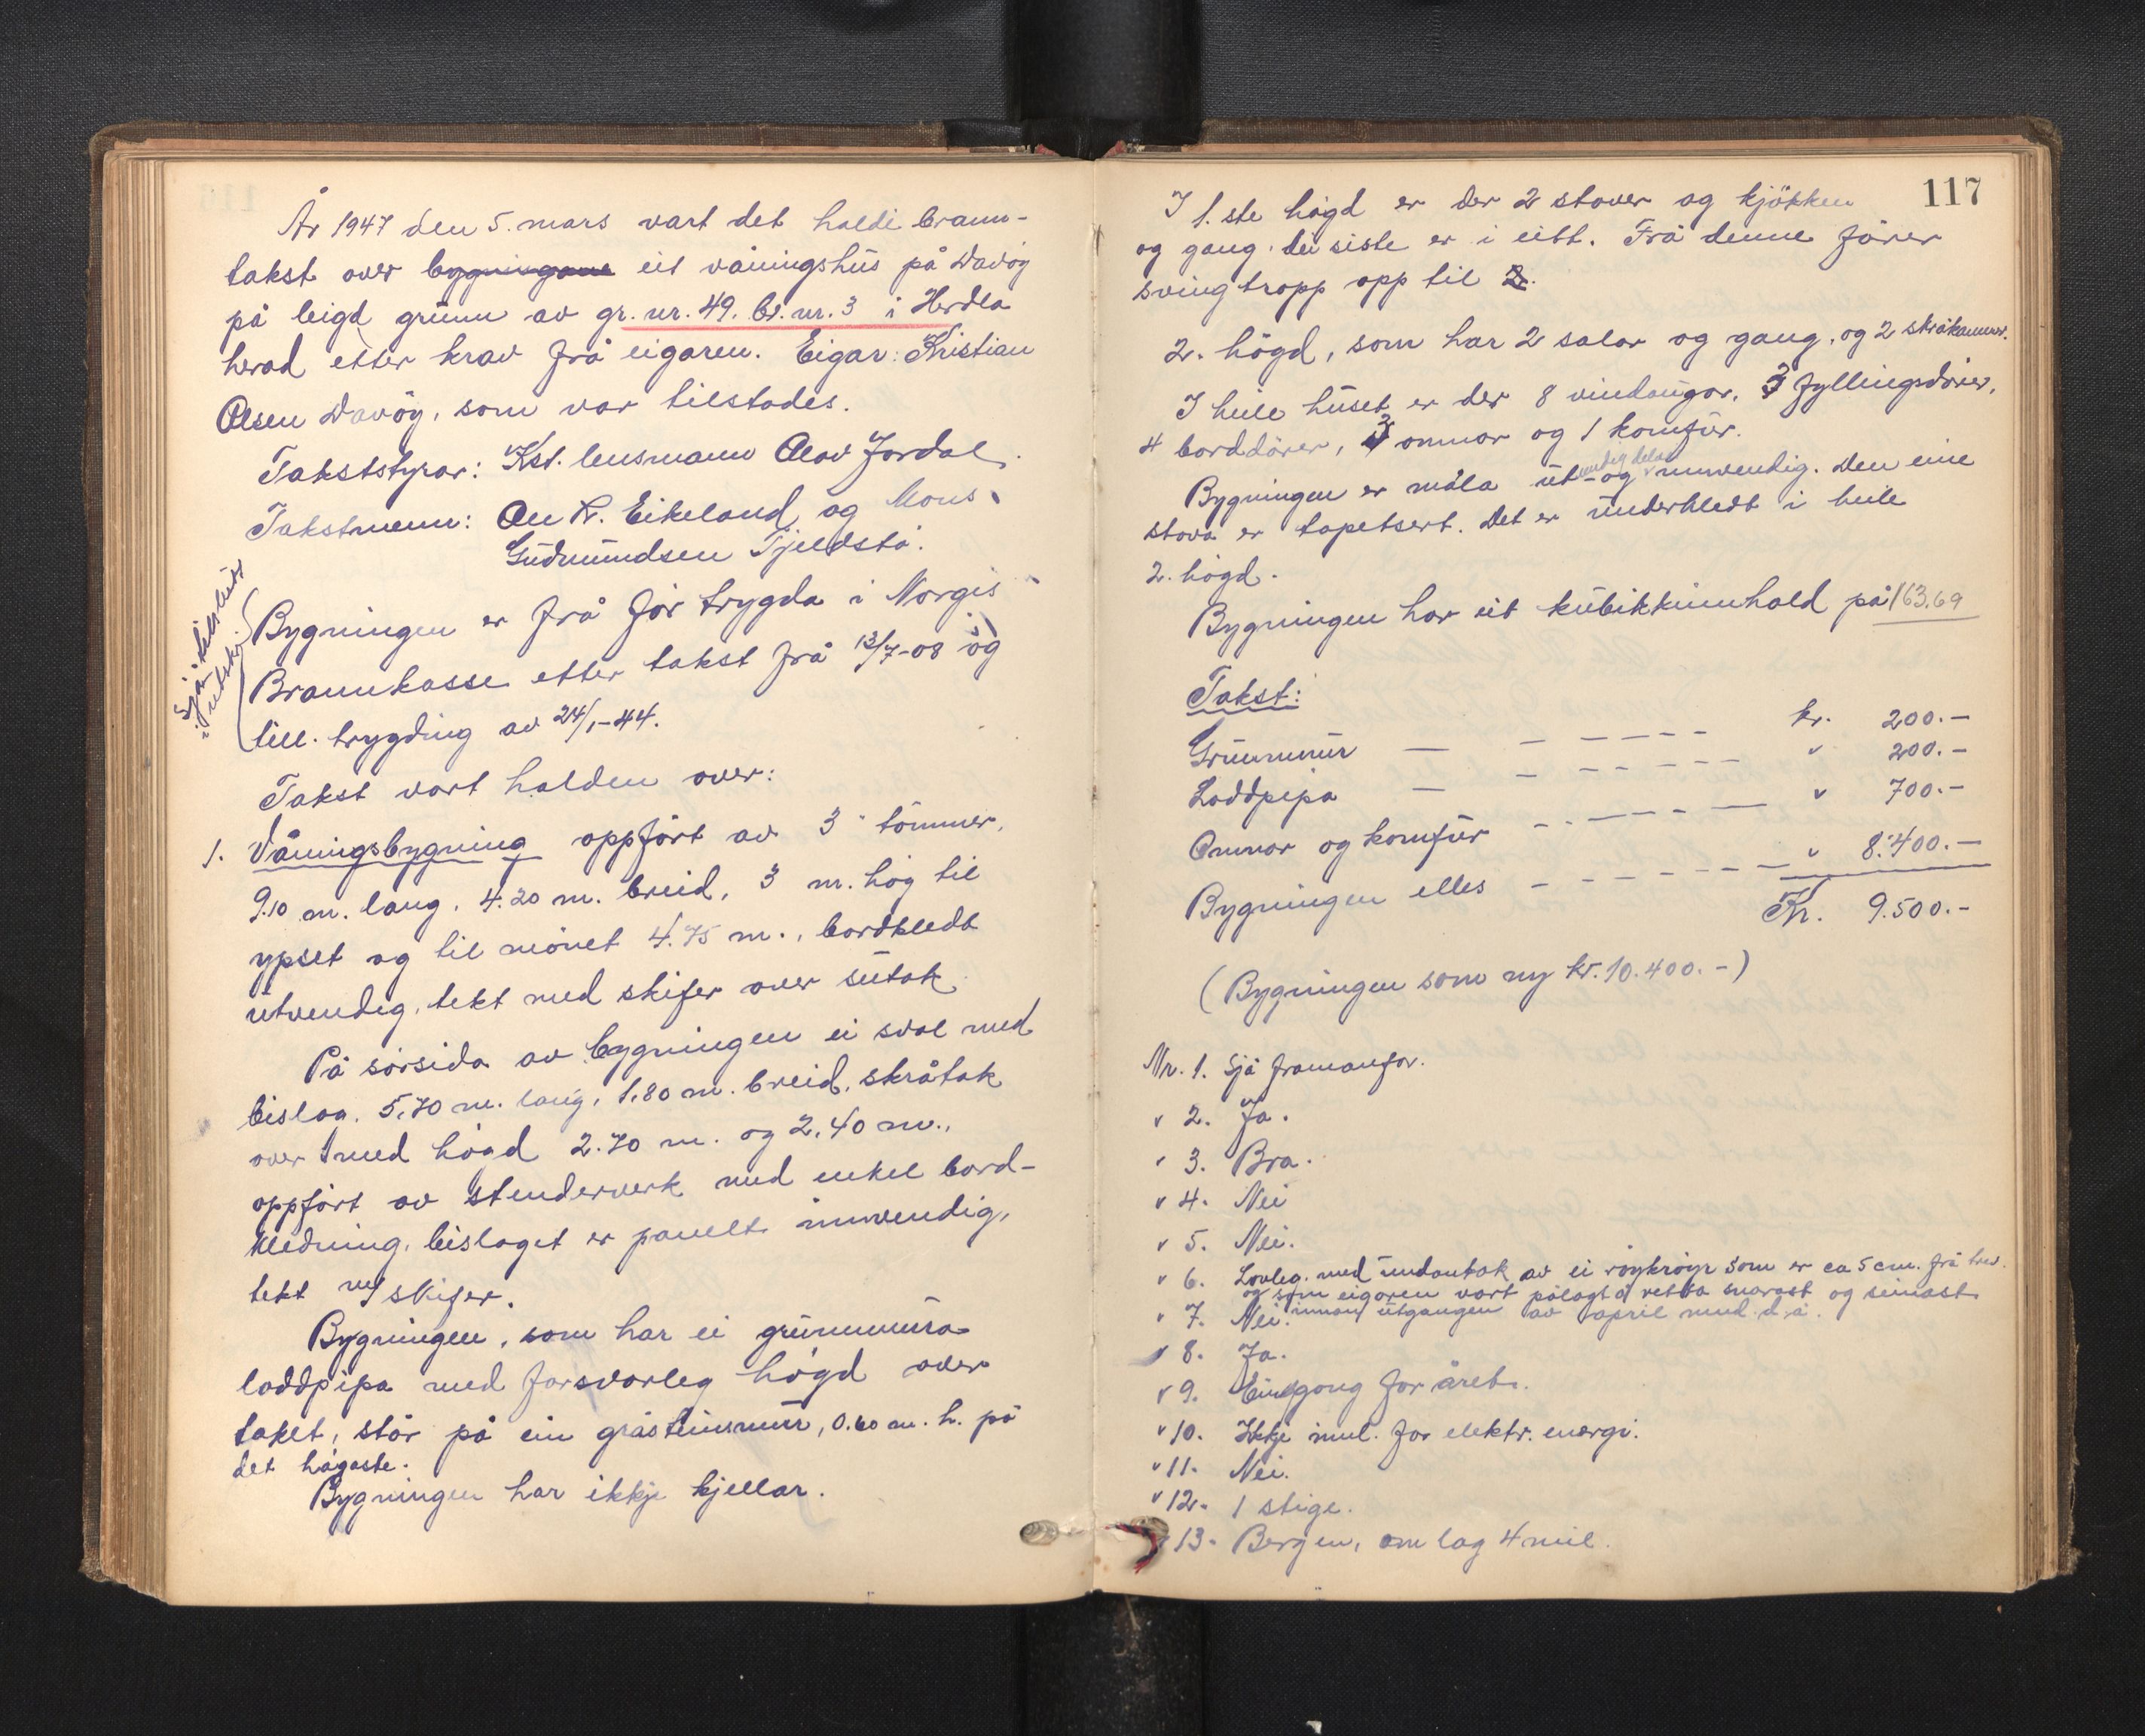 År 1947 den 5. mars vart det haldi brann-
takst over bygningane eit våningshus på Davöy
på leigd grunn av gr. nr. 49. br. nr. 3 i Herdla
herad etter krav frå eigaren. Eigar: Kristian
Olsen Davöy, som var tilstades.
Takststyrar: Kst. lensmann Olav Jordal.
Takstmenn: Ole K. Eikeland og Mons
Gudmundsen Tjeldstö.
Sjå tilslutt
i utskr.
Bygningen er frå för trygda i Norges
Brannkasse etter takst frå 13/7-08 og
till. trygding av 24/1-44.
Takst vart halden over:
1. Våningsbygning oppfört av 3" tömmer,
9.10 m. lang, 4.20 m. breid, 3 m. hög til
ypset og til mönet 4.75 m., bordkledt
utvendig, tekt med skifer over sutak.
På sörsida av bygningen ei sval med
bislag. 5,70 m. lang, 1,80 m. breid, skråtak
over med högd 2.70 m. og 2.40 m.,
oppfört av stenderverk med enkel bord-
kledning, bislaget er panelt innvendig,
tekt m/ skifer.
Bygningen, som har ei grunnmura
loddpipa med forsvarleg högd over
taket, står på ein gråsteinsmur, 0.60 m. h. på
det högaste.
Bygningen har ikkje kjellar.
117
I 1. ste högd er der 2 stover og kjökken
og gang. dei siste er i eitt. Frå denne förer
svingtropp opp til 2.
2. högd, som har 2 salar og gang, og 2 skråkammer.
I heile huset er der 8 vindaugor, 3 fyllingsdörer,
4 borddörer, 3 omnar og 1 komfür.
Bygningen er måla ut- og innvendig. Den eine
stova er tapetsert. Det er underkledt i heile
2. högd.
Bygningen har eit kubikkinnhald på 163,69
Takst:
Grunnmur — — — — — — kr. 200.-
Loddpipa — — — — — — " 200.-
Omnar og komfür — — — — — " 700.-
Bygningen elles — — — — — — " 8.400.-
Kr. 9.500.-
(Bygningen som ny kr. 10.400.-)
Nr. 1. Sjå framanfor.
" 2. Ja.
" 3. Bra.
" 4. Nei
" 5. Nei.
" 6. Lovleg. med undantak av ei röykröyr som er ca 5 cm. frå trev.
og som eigaren vart pålagt å retta snarast og seinast
" 7. Nei. innan utgangen av april mnd. d.å.
" 8. Ja.
" 9. Ein gong for året.
" 10. Ikkje innl. for elektr. energi.
" 11. Nei.
" 12. 1 stige.
" 13. Bergen, om lag 4 mil.